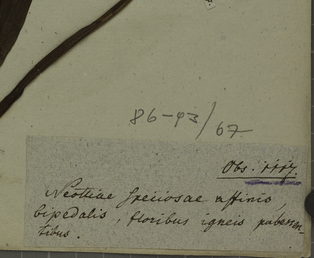 86-93/67
Obs. 1117.
Neottiae speciosae affinis,
bipedalis, floribus igneis pubescen-
tibus.